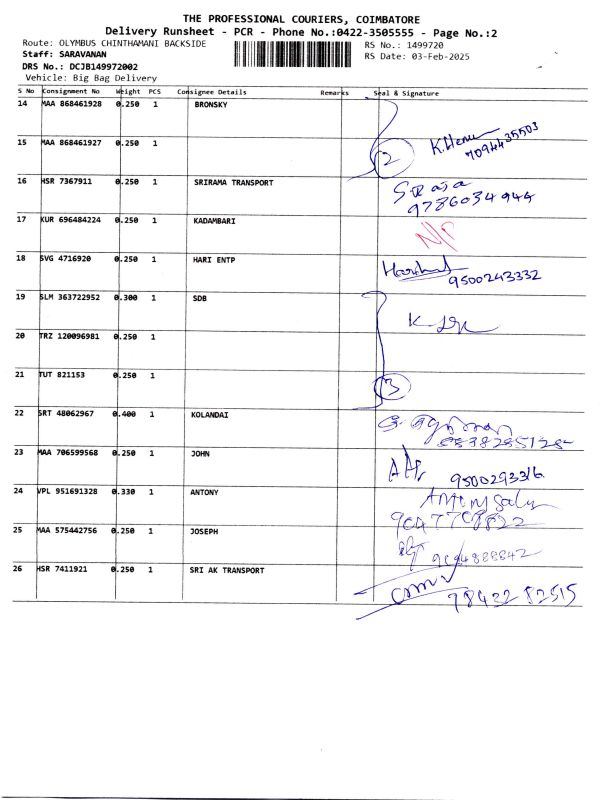 THE PROFESSIONAL COURIERS, COIMBATORE
Delivery Runsheet - PCR - Phone No.:0422-3505555 - Page No.:2
Route: OLYMBUS CHINTHAMANI BACKSIDE RS No.: 1499720
Staff: SARAVANAN RS Date: 03-Feb-2025
DRS No.: DCJB149972002
Vehicle: Big Bag Delivery
S No Consignment No Weight PCS Consignee Details Remarks Seal & Signature
14 MAA 868461928 0.250 1 BRONSKY
15 MAA 868461927 0.250 1 2 K.Hema 7094435503
16 HSR 7367911 0.250 1 SRIRAMA TRANSPORT
9786034944
17 KUR 696484224 0.250 1 KADAMBARI N/P
18 SVG 4716920 0.250 1 HARI ENTP
9500243332
19 SLM 363722952 0.300 1 SDB
20 TRZ 120096981 0.250 1
21 TUT 821153 0.250 1 3
22 SRT 48062967 0.400 1 KOLANDAI
23 MAA 706599568 0.250 1 JOHN
9500293316
24 VPL 951691328 0.330 1 ANTONY
25 MAA 575442756 0.250 1 JOSEPH
26 HSR 7411921 0.250 1 SRI AK TRANSPORT
78422 82515